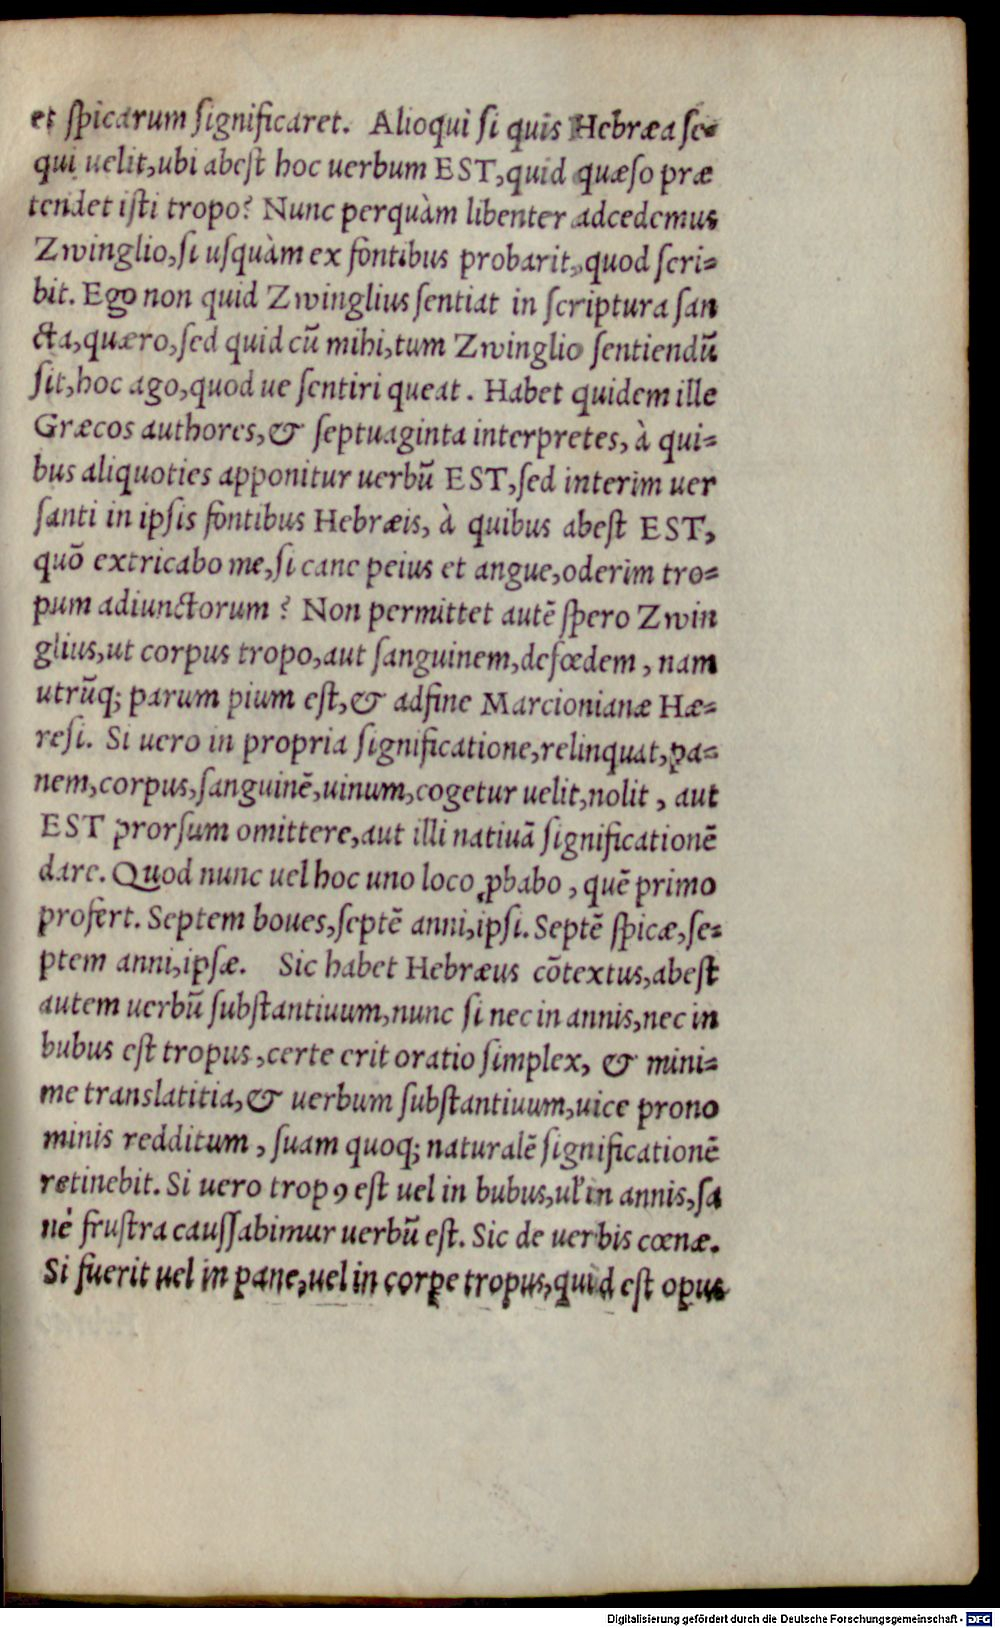 et ſpicarum ſignificaret. Alioqui ſi quis Hebræa ſe-
qui uelit,ubi abeſt hoc uerbum EST,quid quæſo præ
tendet iſti tropo? Nunc perquàm libenter adcedemus
Zwinglio,ſi uſquàm ex fontibus probarit,quod ſcri-
bit. Ego non quid Zwinglius ſentiat in ſcriptura ſan
cta,quæro,ſed quid cũ mihi,tum Zwinglio ſentiendũ
ſit,hoc ago,quod ue ſentiri queat. Habet quidem ille
Græcos authores,& ſeptuaginta interpretes, à qui-
bus aliquoties apponitur uerbũ EST,ſed interim uer
ſanti in ipſis fontibus Hebræis, à quibus abeſt EST,
quõ extricabo me,ſi cane peius et angue,oderim tro-
pum adiunctorum? Non permittet autẽ ſpero Zwin
glius,ut corpus tropo,aut ſanguinem,defœdem, nam
utrũq; parum pium eſt,& adfine Marcionianæ Hæ-
reſi. Si uero in propria ſignificatione,relinquat,pa-
nem,corpus,ſanguinẽ,uinum,cogetur uelit,nolit, aut
EST prorſum omittere,aut illi natiuã ſignificationẽ
dare. Quod nunc uel hoc uno loco ꝓbabo, quẽ primo
profert. Septem boues,ſeptẽ anni,ipſi. Septẽ ſpicæ,ſe-
ptem anni,ipſæ. Sic habet Hebræus cõtextus,abeſt
autem uerbũ ſubſtantiuum,nunc ſi nec in annis,nec in
bubus eſt tropus,certe erit oratio ſimplex, & mini-
me translatitia,& uerbum ſubſtantiuum,uice prono
minis redditum, ſuam quoq; naturalẽ ſignificationẽ
retinebit. Si uero tropꝰ eſt uel in bubus,ul' in annis,ſa
nè fruſtra cauſſabimur uerbũ eſt. Sic de uerbis cœnæ.
Si fuerit uel in pane,uel in corpe tropus,quid eſt opus
Digitalisierung gefördert durch die Deutsche Forschungsgemeinschaft - DFG